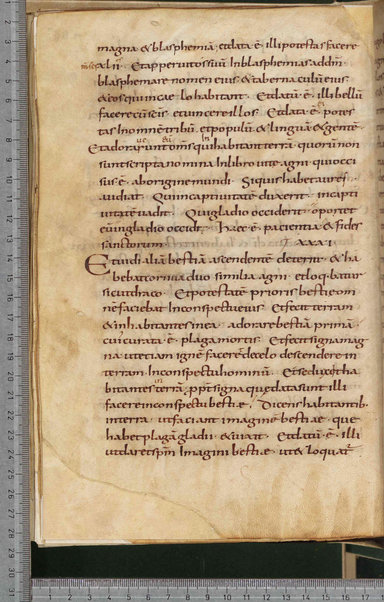 magna & blasphemia. et data ē illi potestas facere
xlii. Et aperuit os suū In blasphemias ad dm̄
blasphemare nomen eius. & tabernaculū eius
& eos qui in caelo habitant. Et datū ē illi bellū
facere cū scīs. et uincere illos. Et data ē potes
tas In omnē tribū. et populū. & linguā & gentē.
Et adorauerunt eum omnes qui habitant terrā. quorū non
sunt scripta nomina In libro uitae agni. qui occi
sus ē. ab origine mundi. Siquis habet aurē
audiat. Qui in captiuitatē duxerit. in capti
uitatē uadit. Qui gladio occiderit. oportet
eū in gladio occidi. haec ē pacientia & fides
sanctorum. XXXI
Et uidi aliā bestiā ascendentē de terra. & ha
bebat cornua duo similia agni. et loquebatur
sicut draco. Et potestatē prioris bestiae om
nē faciebat In conspectu eius. Et fecit terram
& inhabitantes in ea. adorare bestiā primā
cui curata ē plaga mortis. Et fecit signa mag
na. ut etiam ignē faceret de celo descendere in
terram In conspectu hominū. Et seduxit ha
bitantes in terrā. propt signa quae data sunt illi
facere in conspectu bestiae. Dicens habitantib;
in terra. ut faciant imaginē bestiae. que
habet plagā gladii. & uixit. Et datū ē illi
ut daret spm̄ Imagini bestiae. ut & loquat